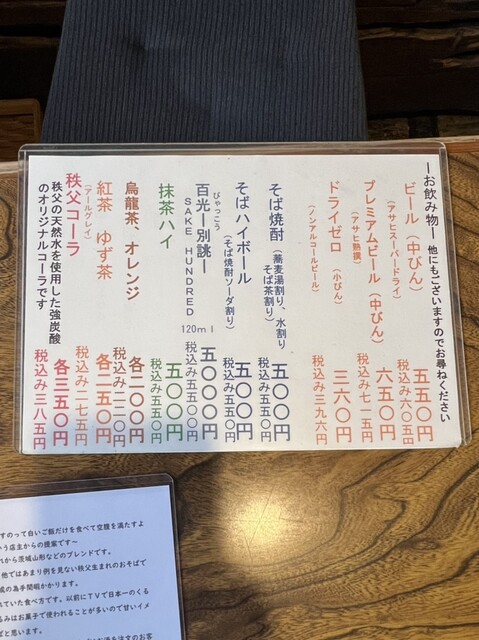 ーお飲み物ー 他にもございますのでお尋ねください
ビール（中びん） 五五〇円
（アサヒスーパードライ） 税込み六〇五円
プレミアムビール（中びん） 六五〇円
（アサヒ熟撰） 税込み七一五円
ドライゼロ（小びん） 三六〇円
（ノンアルコールビール） 税込み三九六円
そば焼酎（蕎麦湯割り、水割り
そば茶割り） 五〇〇円
税込み五五〇円
そばハイボール 五〇〇円
（そば焼酎ソーダ割り） 税込み五五〇円
びゃっこう
百光ー別誂ー 五〇〇〇円
SAKE HUNDRED 120ml 税込み五五〇〇円
抹茶ハイ 五〇〇円
税込み五五〇円
烏龍茶、オレンジ 各二〇〇円
税込み二二〇円
紅茶 ゆず茶 各二五〇円
（アールグレイ） 税込み二七五円
秩父コーラ 各三五〇円
秩父の天然水を使用した強炭酸 税込み三八五円
のオリジナルコーラです
すのって白いご飯だけを食べて空腹を満たすよ
いう店主からの提案です~
れから茨城山形などのブレンドです。
他ではあまり例を見ない秩父生まれのおそばで
成の為手間暇かかります。
れていた食べ方です。以前にＴＶで日本一のくる
るみはお菓子で使われることが多いので甘いイメ
ばと思います。